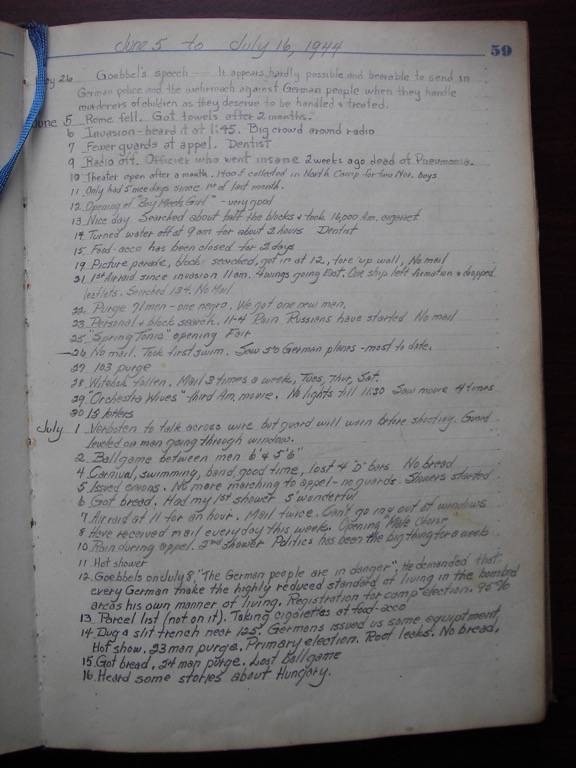 June 5 to July 16, 1944 59
May 26 Goebbel's speech — It appears hardly possible and bearable to send in
German police and the wehrmach against German people when they handle
murderers of children as they deserve to be handled & treated.
June 5 Rome fell. Got towels after 2 months.
6 Invasion - heard it at 1:45. Big crowd around radio
7 Fewer guards at appel. Dentist
9 Radio off. Officier who went insane 2 weeks ago dead of Pneumonia.
10 Theater open after a month. collected in North Camp for two boys
11 Only had 5 nice days since 1st of last month.
12. Opening of "Boy Meets Girl" - very good
13 Nice day Searched about half the blocks & took 16,000 Am. cigaret
14 Turned water off at 9 am for about 2 hours Dentist
15. Food-acco has been closed for 2 days
19. Picture parade, block searched, got in at 12, tore up wall, No mail
21. 1st Airaid since invasion 11am. 4 wings going East. One ship left formation & dropped
leaflets. Searched 134. No Mail
22. Purge 71 men - one negro. We got one new man.
23. Personal & block search. 11-4 Rain Russians have started No mail
25. "Spring Tonic" opening Fair
26 No mail. Took first swim. Saw 50 German planes - most to date.
27. 103 purge
28. Witebsk fallen. Mail 3 times a week, Tues, Thur, Sat.
29. "Orchestra Wives" third Am. movie. No lights till 11:30 Saw movie 4 times
30 15 letters
July 1 Verboten to talk across wire but guard will warn before shooting. Guard
leveled on man going through window.
2. Ballgame between men 6' & 5'6"
4. Carnival, swimming, band, good time, lost 4 "D" bars No bread
5. Issued onions. No more marching to appel - no guards. Showers started
6 Got bread. Had my 1st shower 5 wonderful
7 Airaid at 11 for an hour. Mail twice. Can't go in y out of windows
8 Have received mail everyday this week. Opening Male Chorus
10. Rain during appel. 2nd shower Politics has been the big thing for a week
11. Hot shower
12. Goebbels on July 8, "The German people are in danger". He demanded that
every German make the highly reduced standard of living in the bombed
areas his own manner of living. Registration for camp election. 96%
13. Parcel list (not on it). Taking cigarettes at food-acco
14. Dug a slit trench near 125. Germans issued us some equiptment,
Hot show. 23 man purge. Primary election. Roof leaks. No bread,
15. Got bread, 24 man purge. Lost Ballgame
16. Heard some stories about Hungary.